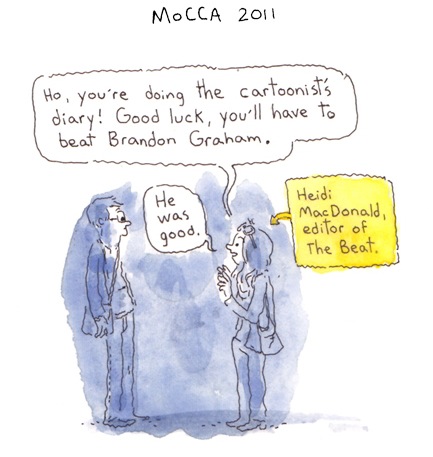 MoCCA 2011
Ho, you're doing the cartoonist's
diary! Good luck, you'll have to
beat Brandon Graham.
He
was
good.
Heidi
MacDonald,
editor of
The Beat.